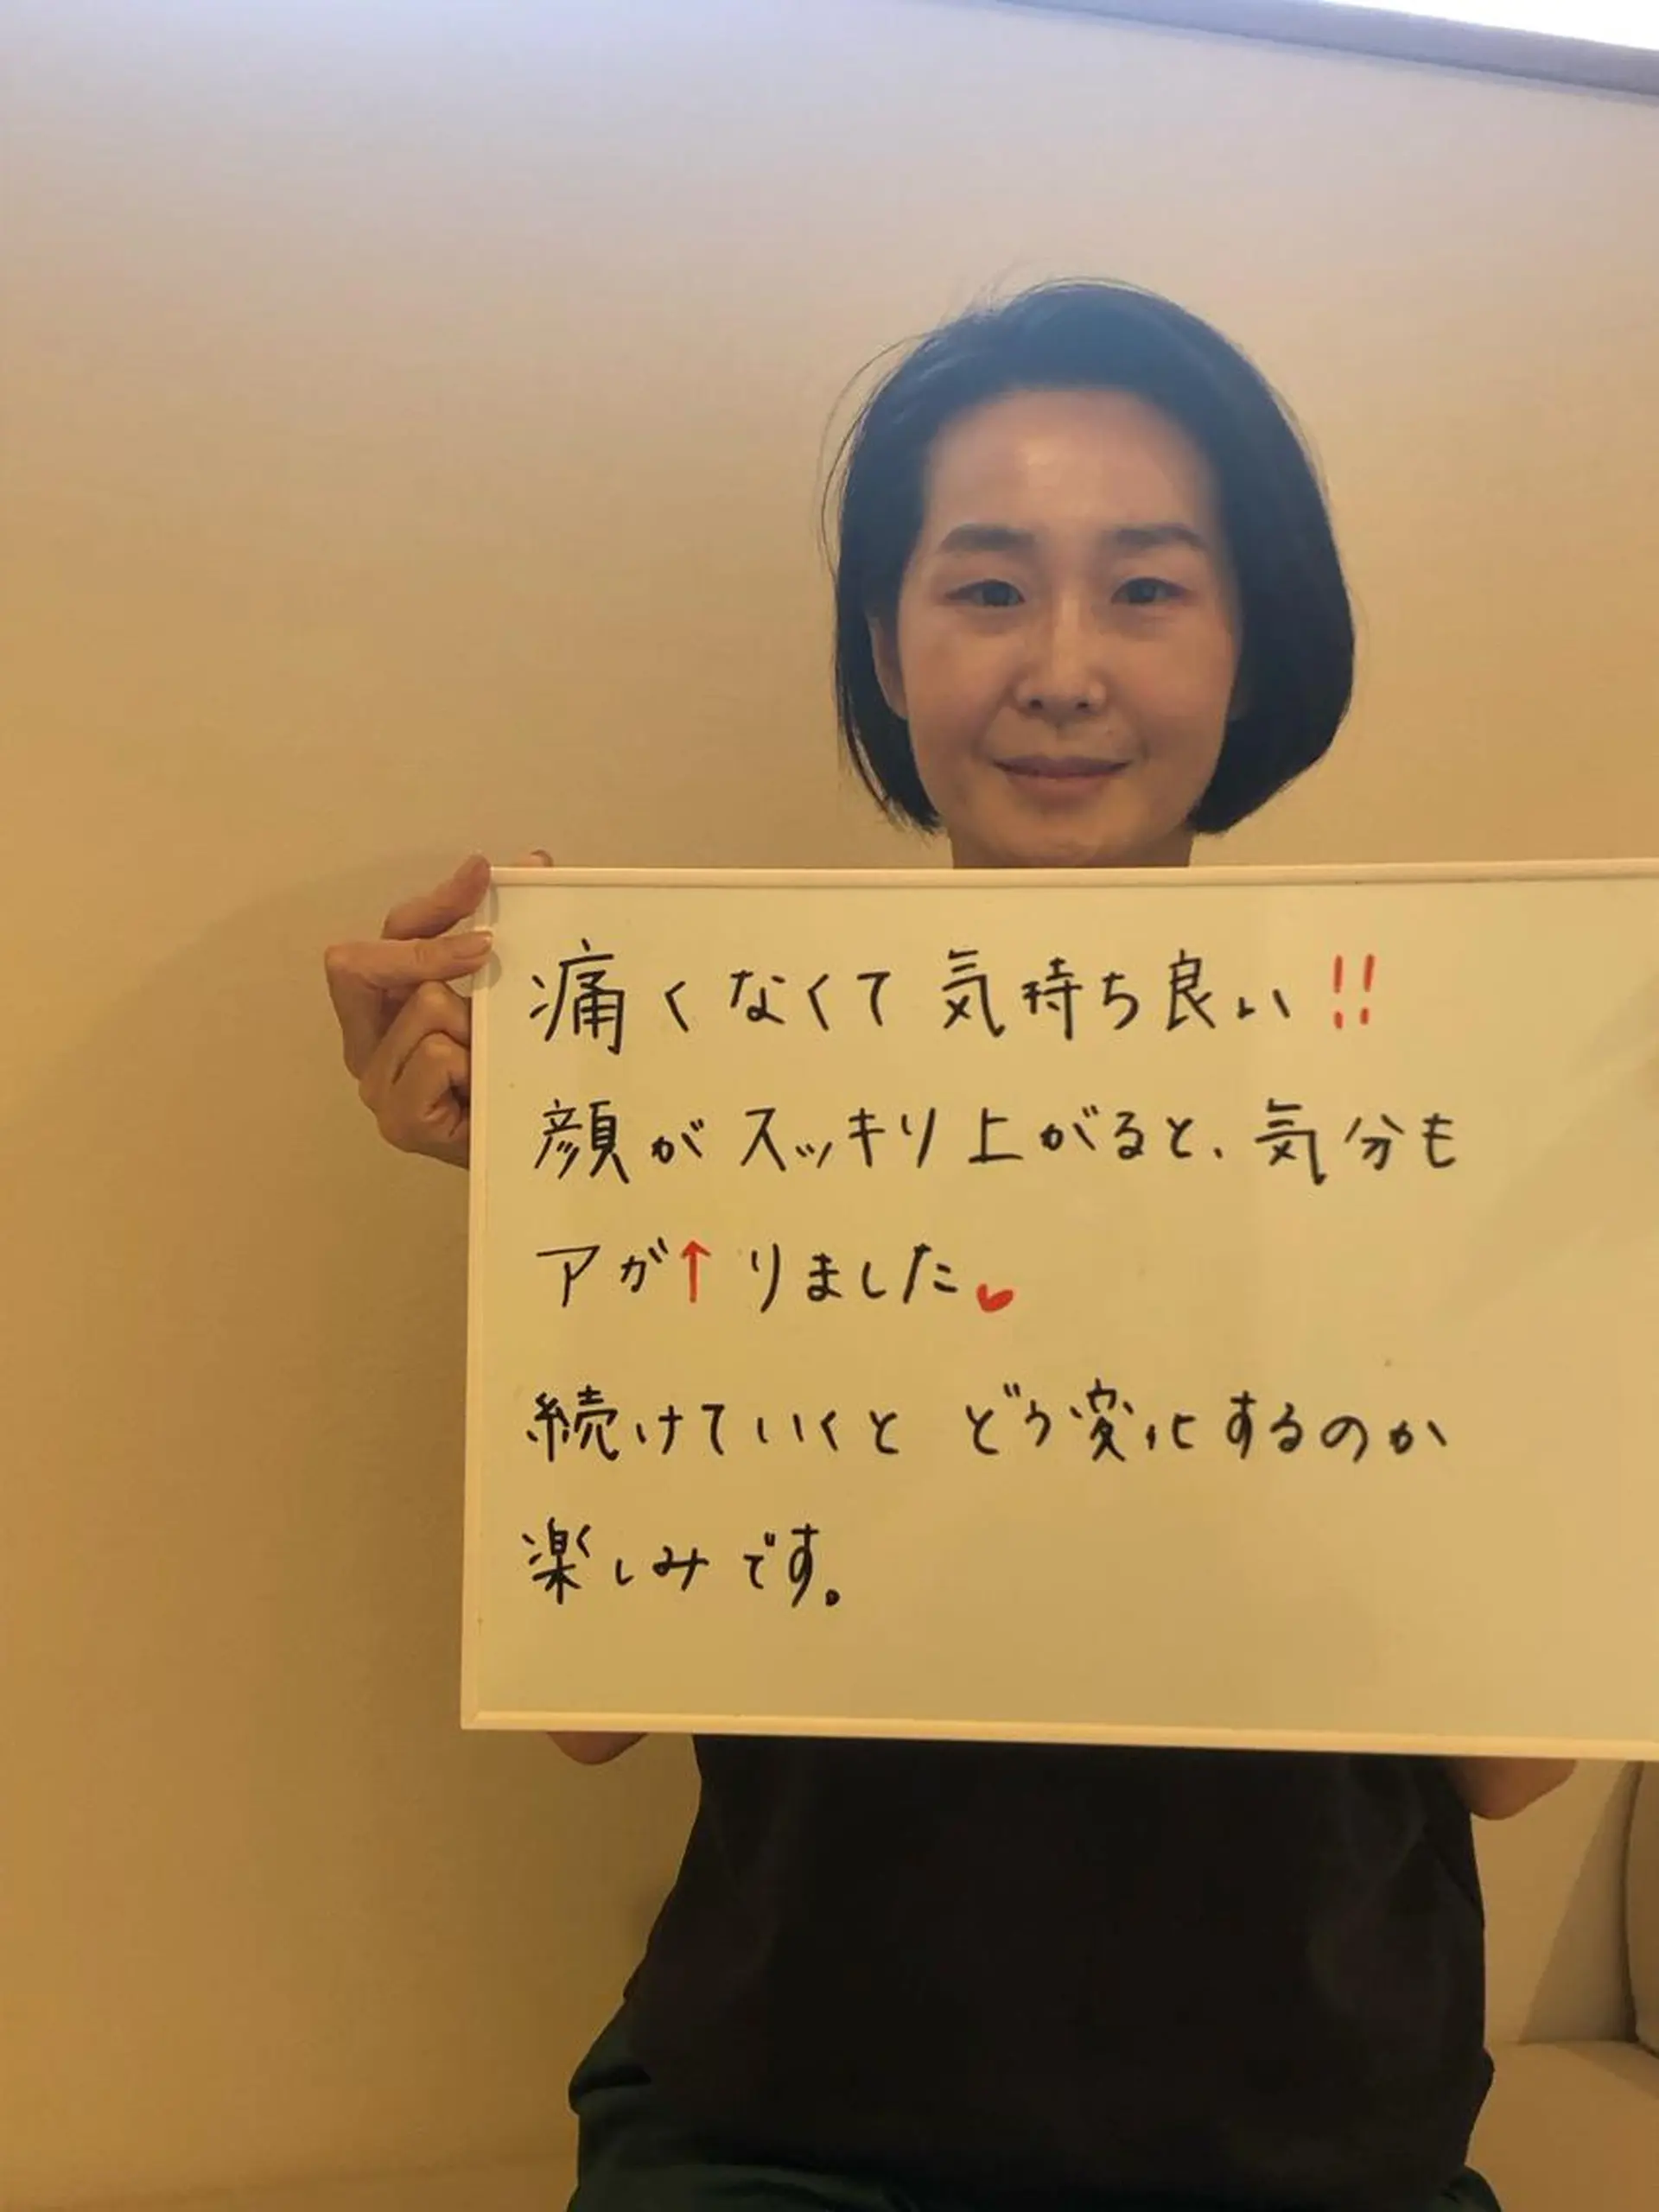 痛くなくて気持ち良い!!
顔がスッキリ上がると、気分も
アガ↑りました♥
続けていくと どう変化するのか
楽しみです。